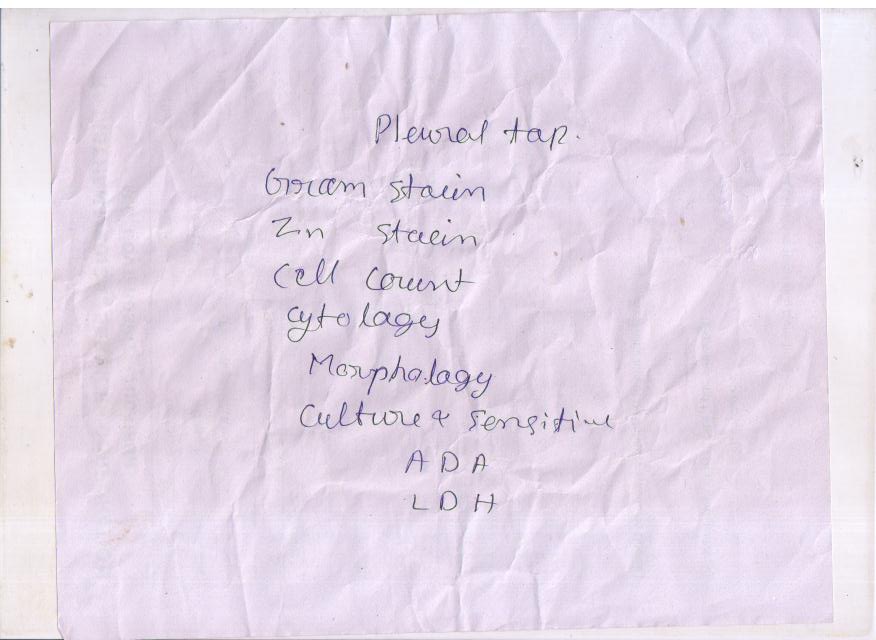 Pleural tap.
Gram stain
Zn stain
Cell count
Cytology
Morphology
Culture & Sensitive
ADA
LDH